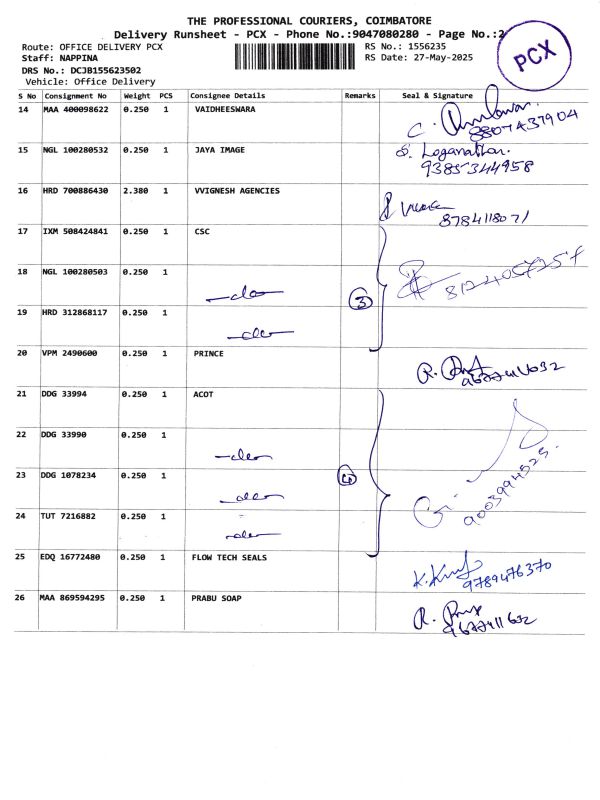 THE PROFESSIONAL COURIERS, COIMBATORE
Delivery Runsheet - PCX - Phone No.:9047080280 - Page No.:2
PCX
Route: OFFICE DELIVERY PCX RS No.: 1556235
Staff: NAPPINA RS Date: 27-May-2025
DRS No.: DCJB155623502
Vehicle: Office Delivery
S No Consignment No Weight PCS Consignee Details Remarks Seal & Signature
14 MAA 400098622 0.250 1 VAIDHEESWARA
8807437904
15 NGL 100280532 0.250 1 JAYA IMAGE S. Loganathan.
9385344958
16 HRD 700886430 2.380 1 VVIGNESH AGENCIES
8784118071
17 IXM 508424841 0.250 1 CSC
18 NGL 100280503 0.250 1 -do- 3
19 HRD 312868117 0.250 1 -do-
20 VPM 2490600 0.250 1 PRINCE
21 DDG 33994 0.250 1 ACOT
22 DDG 33990 0.250 1 -do-
23 DDG 1078234 0.250 1 -do- 4 9003994525.
24 TUT 7216882 0.250 1 -do-
25 EDQ 16772480 0.250 1 FLOW TECH SEALS
9789476370
26 MAA 869594295 0.250 1 PRABU SOAP
9677411632